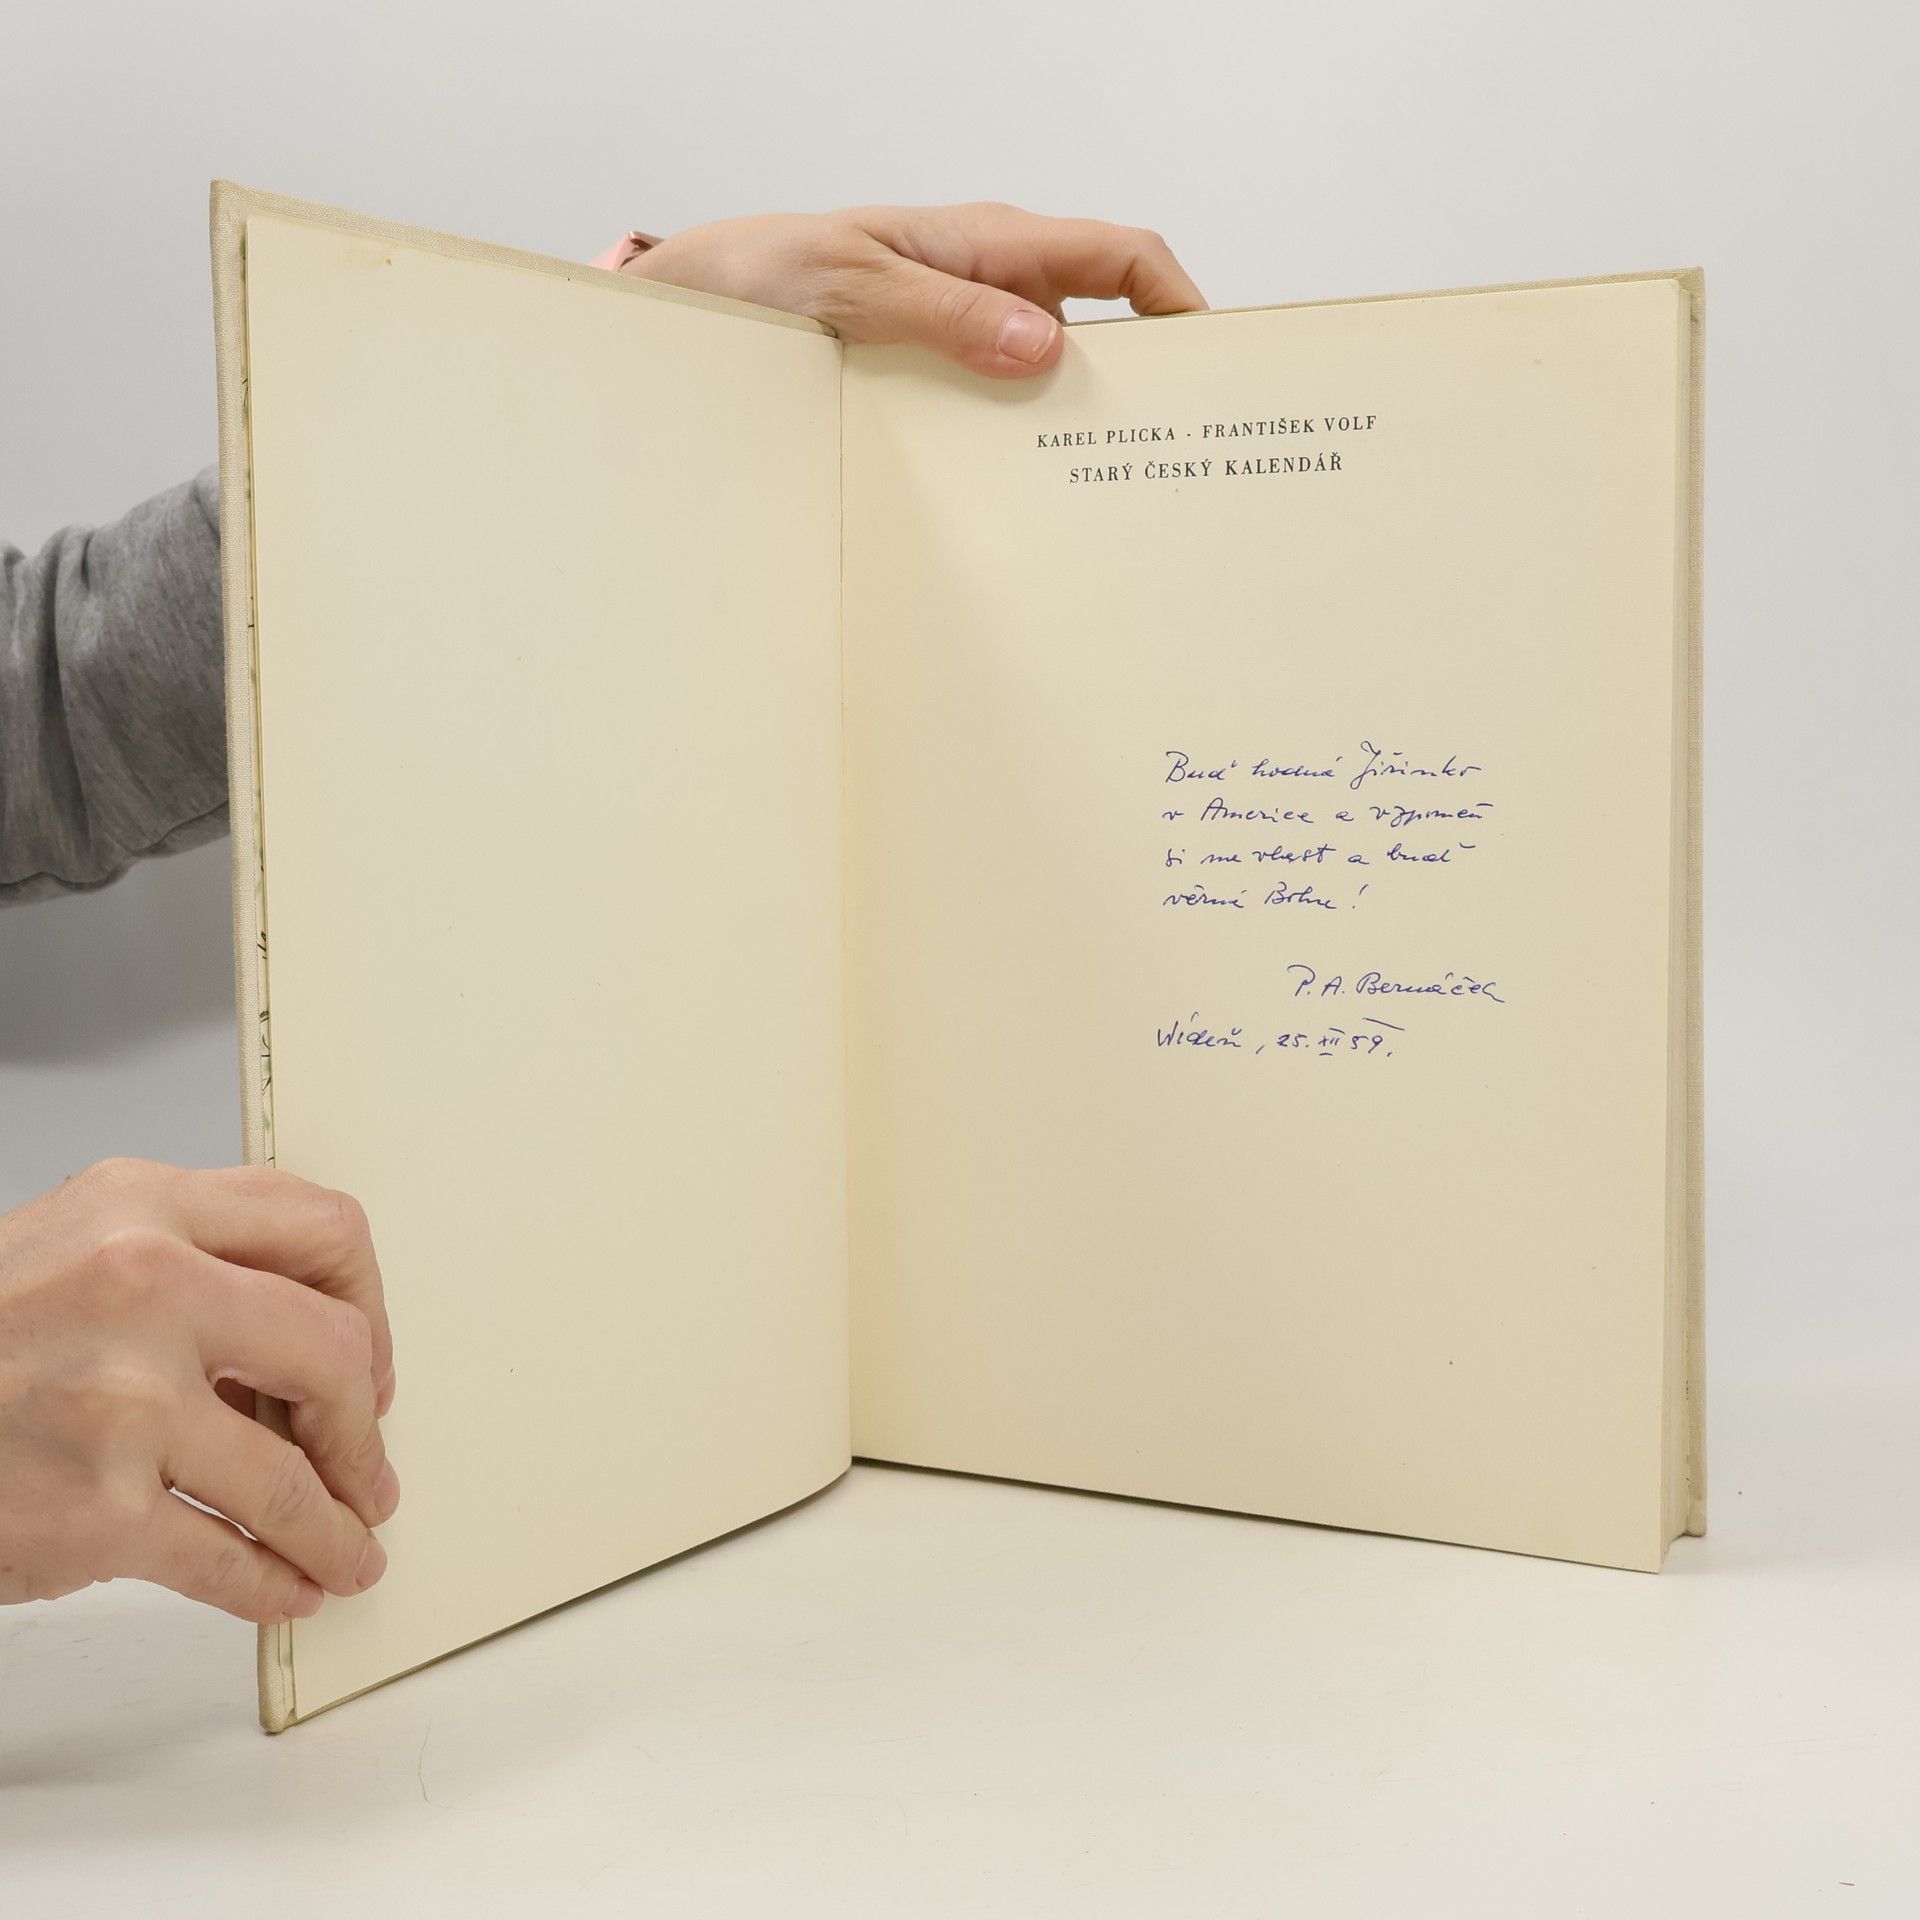 KAREL PLICKA - FRANTIŠEK VOLF
STARÝ ČESKÝ KALENDÁŘ
Buď hodná Jiřinko
v Americe a vzpomeň
si na vlast a buď
věrná Bohu!
P. A. Bernáček
Wídeň, 25. XII 59.